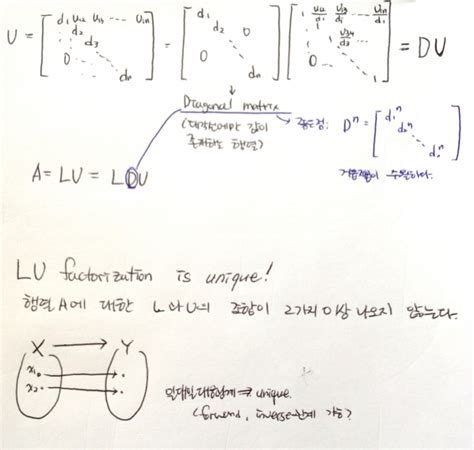 U = [ d₁ u₁₂ u₁₃ ⋯ u₁ₙ d₂ d₃ 0 dₙ ] = [ d₁ d₂ 0 0 dₙ ] [ 1 u₁₂/d₁ u₁₃/d₁ ⋯ u₁ₙ/d₁ 1 0 1 ] = DU
Diagonal matrix
(대각선에만 값이
존재하는 행렬)
→ 장점: Dⁿ = [ d₁ⁿ d₂ⁿ dₙⁿ ]
거듭제곱이 수월하다.
A = LU = LDU
LU factorization is unique!
행렬 A에 대한 L와U의 조합이 2가지 이상 나오지 않는다.
X → Y
x₁
x₂
일대일대응관계 ⇒ unique.
(forward, inverse 관계 가능)